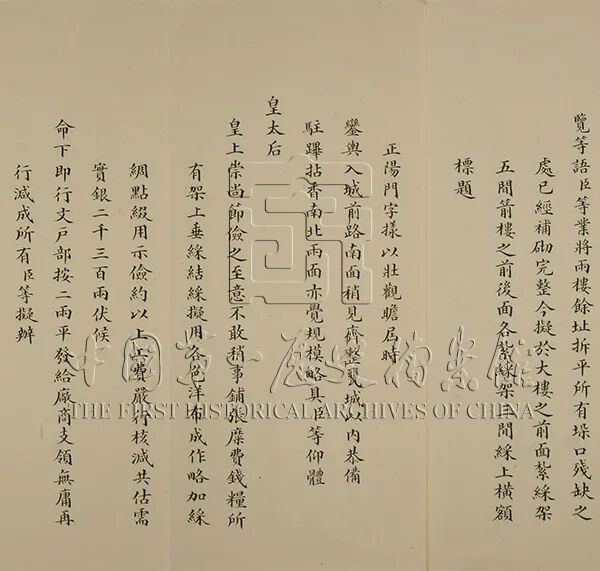 覽等語臣等業將兩樓餘址拆平所有垜口殘缺之
處已經補砌完整今擬於大樓之前面紮綵架
五間箭樓之前後面各紮綵架三間綵上橫額
標題
正陽門字樣以壯觀瞻屆時
鑾輿入城前路南面稍見齊整甕城以內恭備
駐蹕拈香南北兩面亦覺規模略具臣等仰體
皇太后
皇上崇尚節儉之至意不敢稍事鋪張糜費錢糧所
有架上垂綵結綵擬用各色洋布成作略加綵
綢點綴用示儉約以上工費嚴行核減共估需
實銀二千三百兩伏候
命下即行文戶部按二兩平發給廠商支領無庸再
行減成所有臣等擬辦
中國第一歷史檔案館
THE FIRST HISTORICAL ARCHIVES OF CHINA